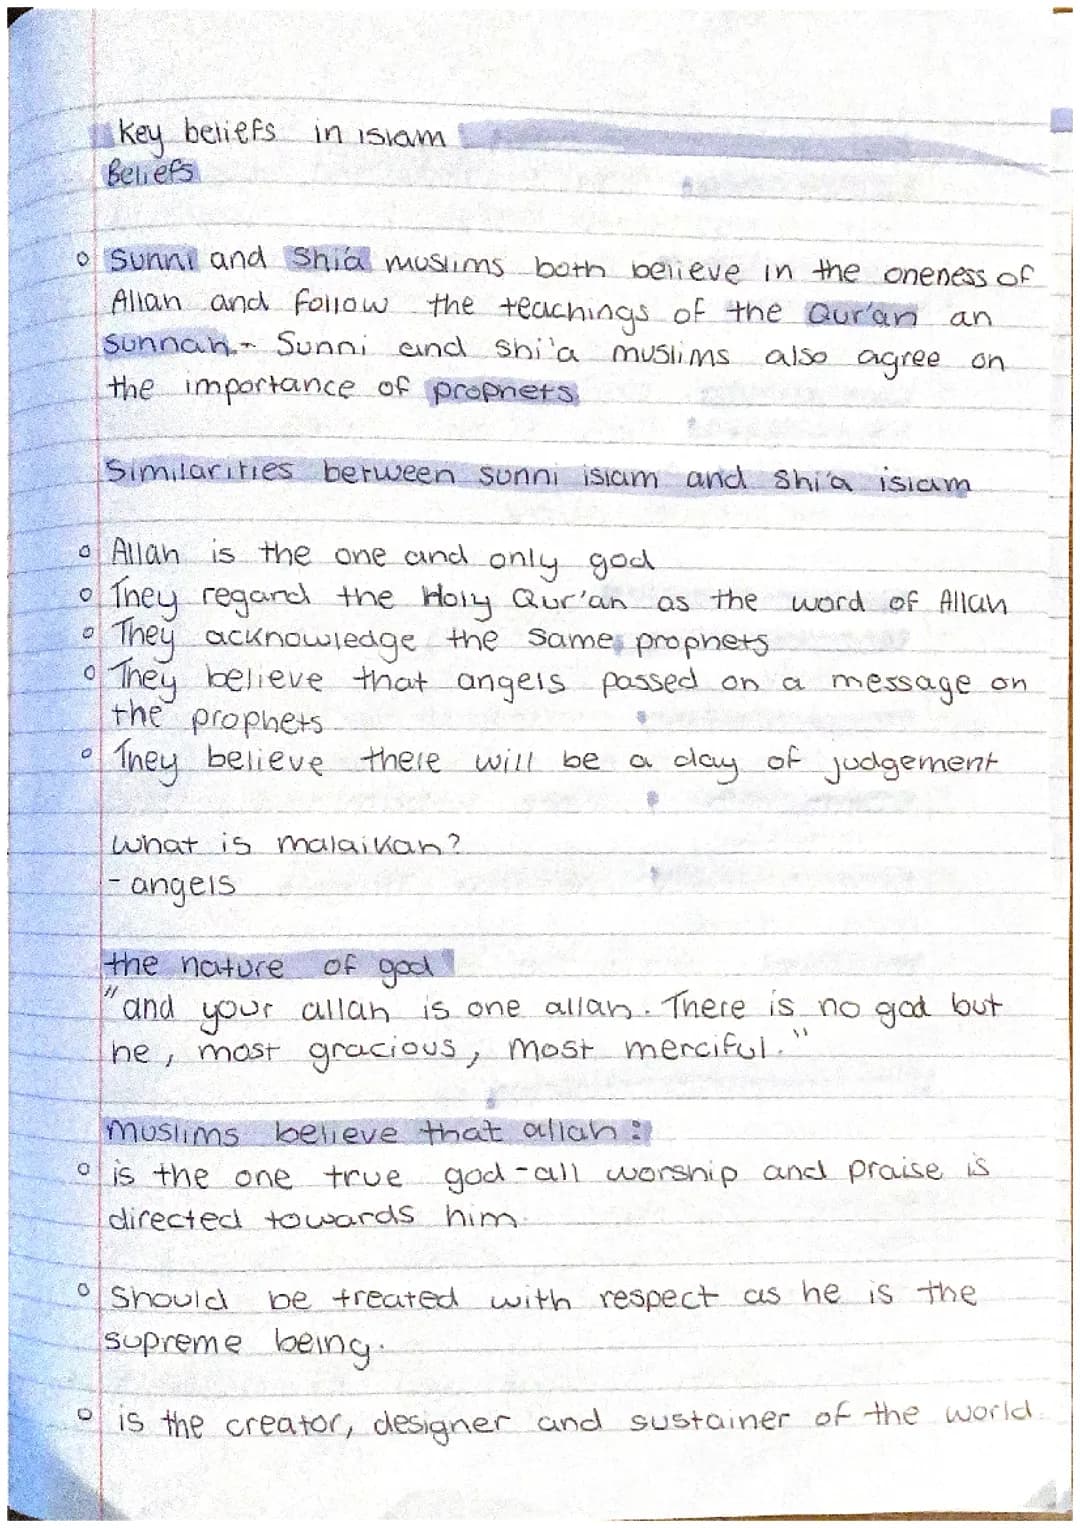 Key beliefs in islam
Beliefs
Sunni and Shi'a muslims both believe in the oneness of
Allah and follow the teachings of the Qur'an an
sunnah - Sunni and shi'a muslims also agree on
the importance of prophets
Similarities between sunni islam and Shi'a islam
Allah is the one and only god
They regard the Holy Qur'an as the word of Allah
They acknowledge the same prophets
They believe that angels passed on a message on
the prophets
They believe there will be a day of judgement
What is malaikah?
- angels
the nature of god
"and your allah is one allah. There is no god but
he, most gracious, most merciful."
muslims believe that allah:
is the one true god - all worship and praise is
directed towards him.
Should be treated with respect as he is the
supreme being.
is the creator, designer and sustainer of the world.